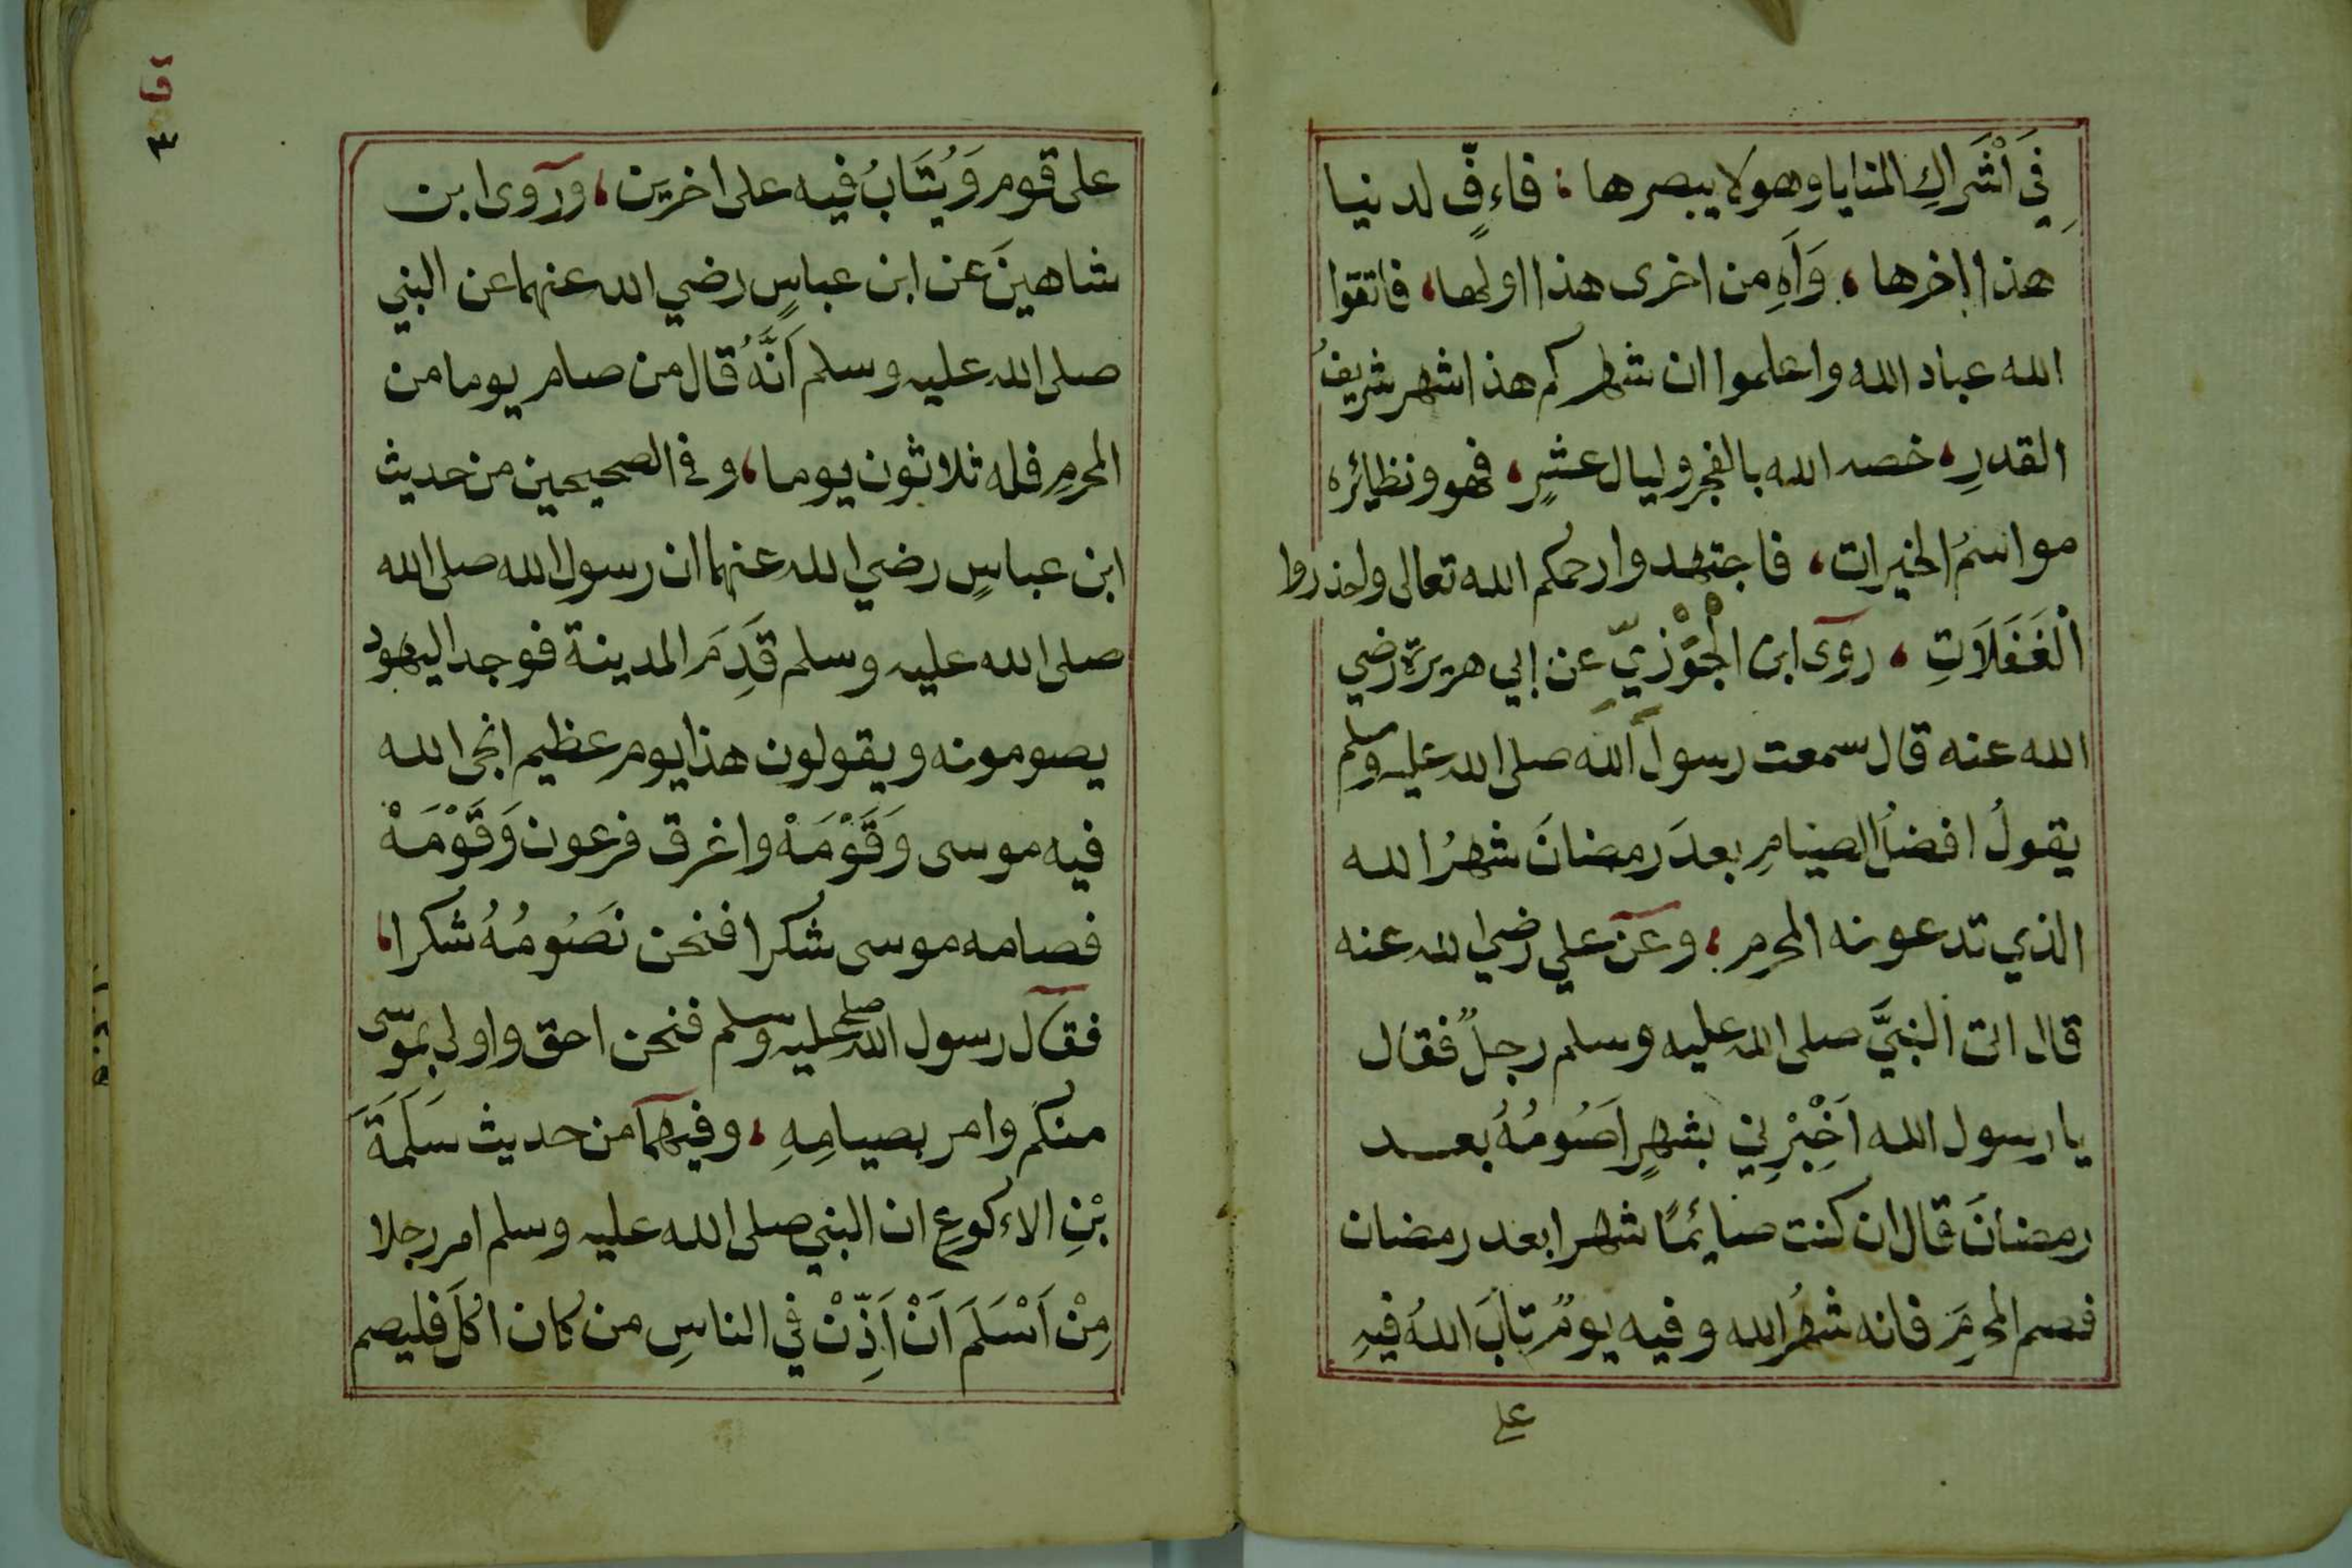 فِي اَشْرَاكِ المنايا وهو لا يبصرها ؛ فاءفٍّ لدنيا
هذا اخرها ، وَاَهٍ من اخرى هذا اولها ، فاتقوا
الله عباد الله واعلموا ان شهركم هذا شهر شريفُ
القدرِ ، خصه الله بالفجر وليال عشرٍ ، فهو ونظائره
مواسمُ الخيرات ، فاجتهدوا رحمكم الله تعالى واحذروا
اْلغَفَلَاتِ ، روى ابن الْجَوْزِيِّ عن ابي هريرة رضي
الله عنه قال سمعت رسولَ الله صلى الله عليه وسلم
يقولُ افضلُ الصيامِ بعدَ رمضانَ شهرُ الله
الذي تدعونه المحرم ؛ وعن علي رضي الله عنه
قال اتى النبيَّ صلى الله عليه وسلم رجلٌ فقال
يا رسول الله اَخْبِرْنِي بشهرٍ اَصُومُهُ بعد
رمضانَ قال ان كنت صائمًا شهرا بعد رمضان
فصم المحرمَ فانه شهرُ الله وفيه يومٌ تابَ اللهُ فيهِ
على
٣
على قوم وَيُتَابُ فيه على اخرين ، وروى ابن
شاهينَ عن ابن عباسٍ رضي الله عنهما عن النبي
صلى الله عليه وسلم اَنَّهُ قال من صام يوما من
المحرمِ فله ثلاثون يوما ، وفي الصحيحين من حديث
ابن عباسٍ رضي الله عنهما ان رسول الله صلى الله
صلى الله عليه وسلم قَدِمَ المدينة فوجد اليهود
يصومونه ويقولون هذا يوم عظيم انجى الله
فيه موسى وَقَوْمَهْ واغرق فرعون وَقَوْمَهْ
فصامه موسى شكرا فنحن نَصُومُهُ شكرا ،
فقال رسول الله صلى عليه وسلم فنحن احق واولى بموسى
منكم وامر بصيامِهِ ، وفيهما من حديث سَلَمَةَ
بْنِ الاءكوعِ ان النبي صلى الله عليه وسلم امر رجلا
مِنْ اَسْلَمَ اَنْ اَذِّنْ في الناسِ من كان اكلَ فليصم